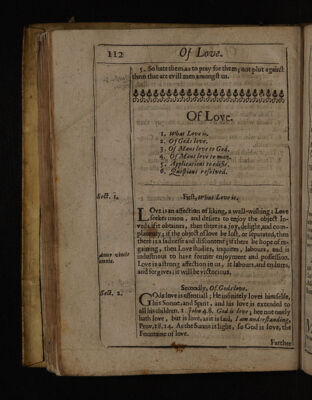 112
Of Love.
5. So hate them as to pray for them; not plot against
them that are evill men amongst us.
Of Love.
1. What Love is.
2. Of Gods love.
3. Of Mans love to God.
4. Of Mans love to man.
5. Applications to edifie.
6. Questions resolved.
Sect. 1.
First, What Love is.
LOve is an affection of liking, a well-wishing: Love
seekes union, and desires to enjoy the object lo-
ved; if it obtaines, then there is a joy, delight, and com-
placency; if the object of love be lost, or separated, then
there is a sadnesse and discontent; if there be hope of re-
gaining, then Love studies, inquires, labours, and is
industrious to have former enjoyment and possession.
Love is a strong affection in us, it labours, and endures,
and forgives; it will be victorious.
Amor vincit
omnia.
Sect. 2.
Secondly, Of Gods love.
GOds love is essentiall; He infinitely loves himselfe,
his Sonne, and Spirit, and his love is extended to
all his children. 1 John 4.8. God is love; hee not onely
hath love, but is love, as it is said, I am understanding,
Prov. 18.14. As the Sunne is light, so God is love, the
Fountaine of love.
Farther